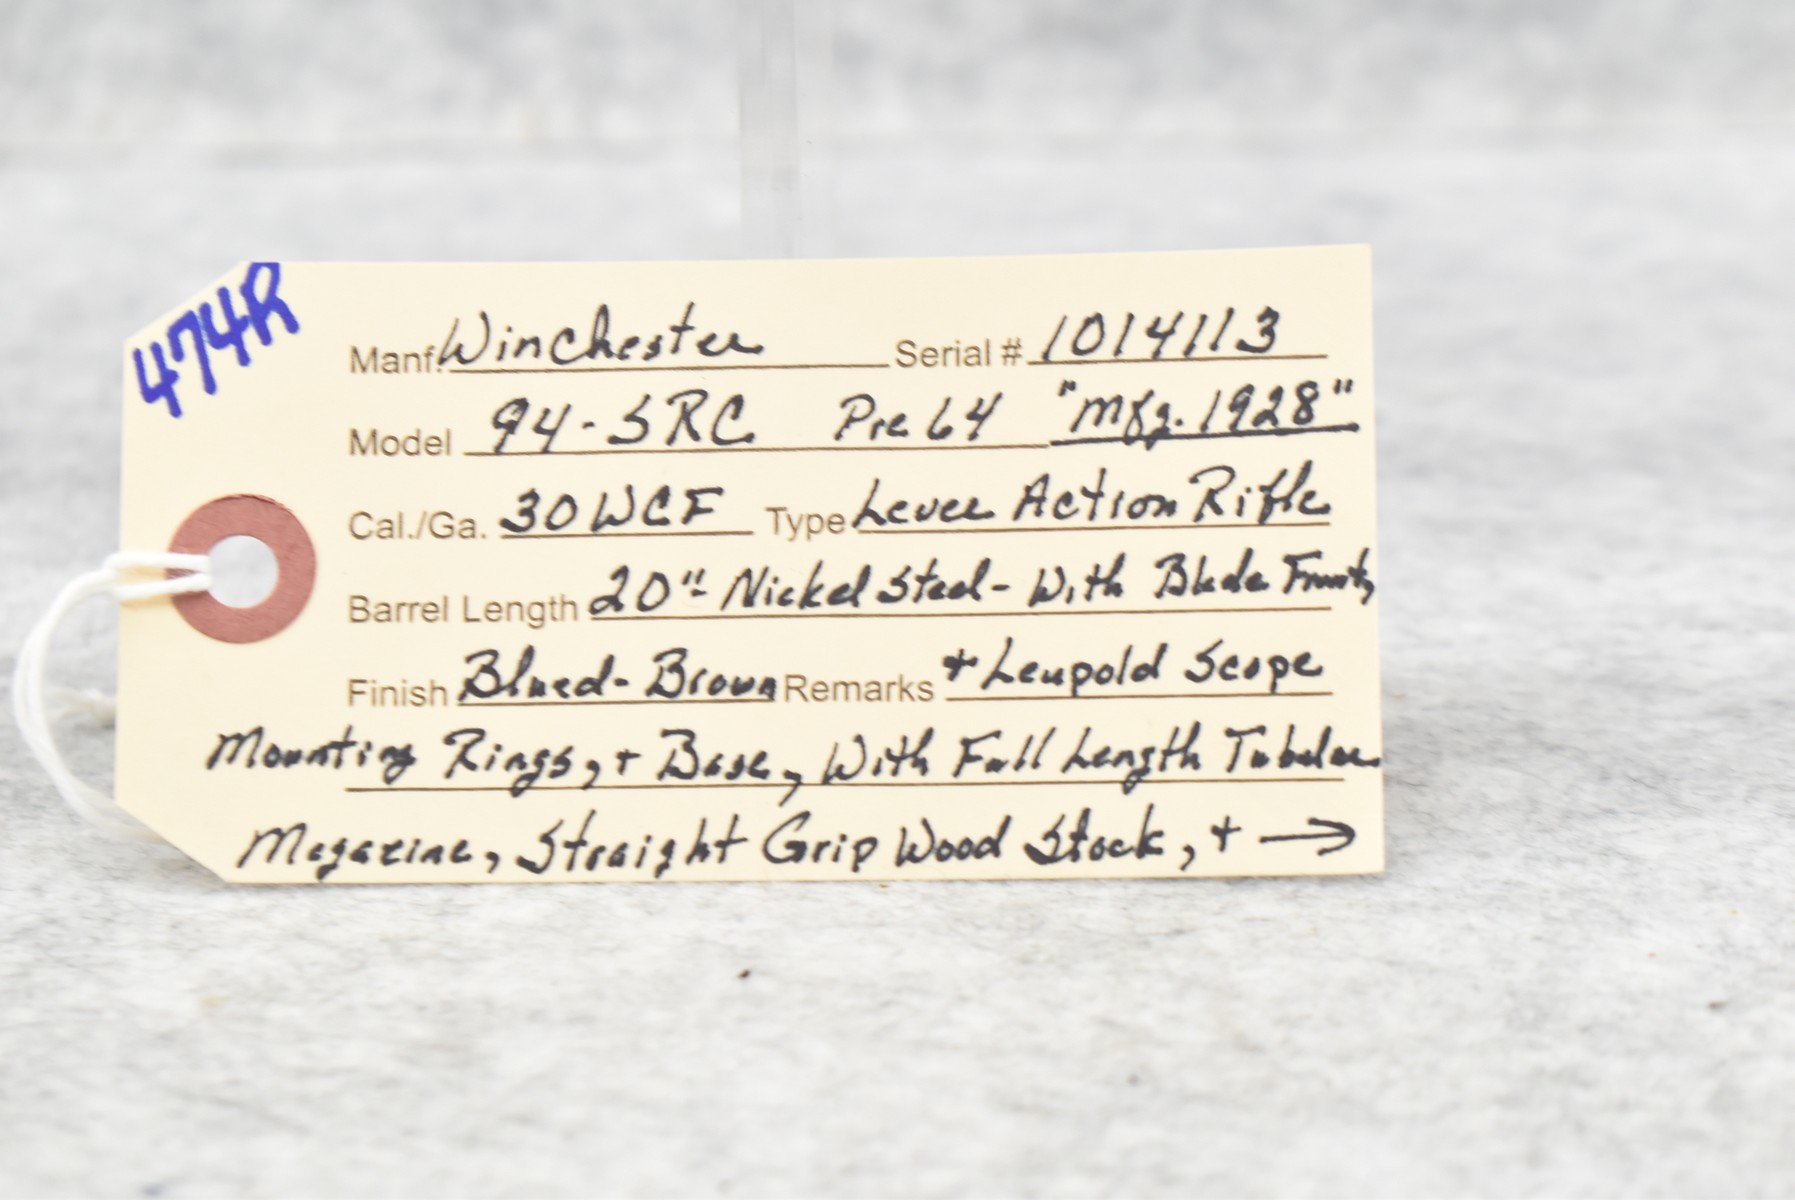 474R
Manf. Winchester Serial # 1014113
Model 94-SRC Pre 64 "Mfg. 1928"
Cal./Ga. 30WCF Type Lever Action Rifle
Barrel Length 20"- Nickel Steel- With Blade Front,
Finish Blued- Brown Remarks + Leupold Scope
Mounting Rings, + Base, With Full Length Tubular
Magazine, Straight Grip Wood Stock, + →